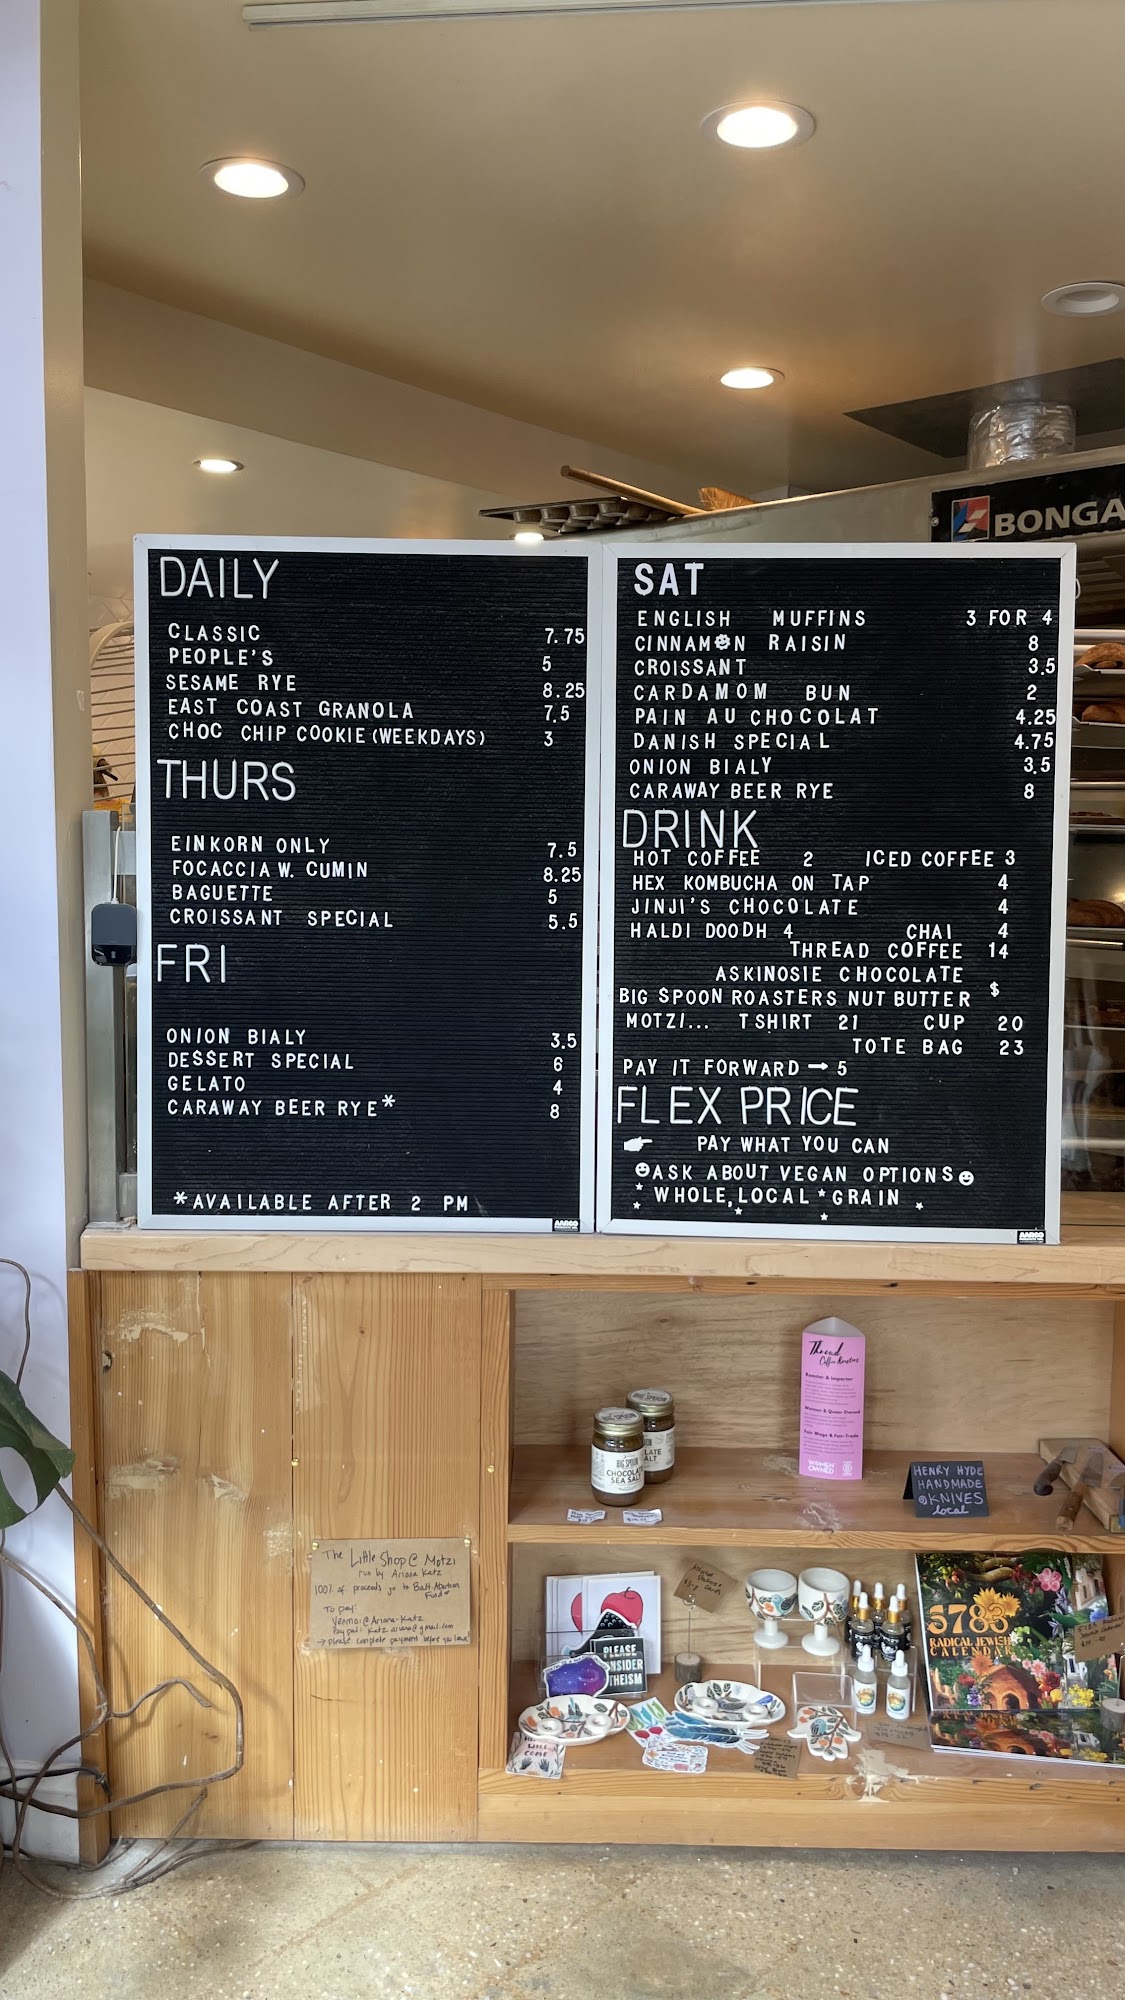 BONGA
DAILY
CLASSIC 7.75
PEOPLE'S 5
SESAME RYE 8.25
EAST COAST GRANOLA 7.5
CHOC CHIP COOKIE (WEEKDAYS) 3
THURS
EINKORN ONLY 7.5
FOCACCIA W. CUMIN 8.25
BAGUETTE 5
CROISSANT SPECIAL 5.5
FRI
ONION BIALY 3.5
DESSERT SPECIAL 6
GELATO 4
CARAWAY BEER RYE* 8
*AVAILABLE AFTER 2 PM
AARCO
SAT
ENGLISH MUFFINS 3 FOR 4
CINNAMON RAISIN 8
CROISSANT 3.5
CARDAMOM BUN 2
PAIN AU CHOCOLAT 4.25
DANISH SPECIAL 4.75
ONION BIALY 3.5
CARAWAY BEER RYE 8
DRINK
HOT COFFEE 2 ICED COFFEE 3
HEX KOMBUCHA ON TAP 4
JINJI'S CHOCOLATE 4
HALDI DOODH 4 CHAI 4
THREAD COFFEE 14
ASKINOSIE CHOCOLATE
BIG SPOON ROASTERS NUT BUTTER $
MOTZI... T SHIRT 21 CUP 20
TOTE BAG 23
PAY IT FORWARD → 5
FLEX PRICE
PAY WHAT YOU CAN
ASK ABOUT VEGAN OPTIONS
WHOLE, LOCAL * GRAIN
AARCO
Thread
Coffee Roasters
Roaster & Importer
Women & Queer Owned
Fair Wage & Fair-Trade
WOMEN
OWNED
BIG SPOON
CHOCOLATE
SEA SALT
HENRY HYDE
HANDMADE
KNIVES
local
The Little Shop @ Motzi
run by Ariana Katz
100% of proceeds go to Balt. Abortion
Fund
To pay:
Venmo: @Ariana-Katz
Paypal: katz.ariana@gmail.com
→ please complete payment before you leave
PLEASE
CONSIDER
5783
RADICAL JEWISH
CALENDAR